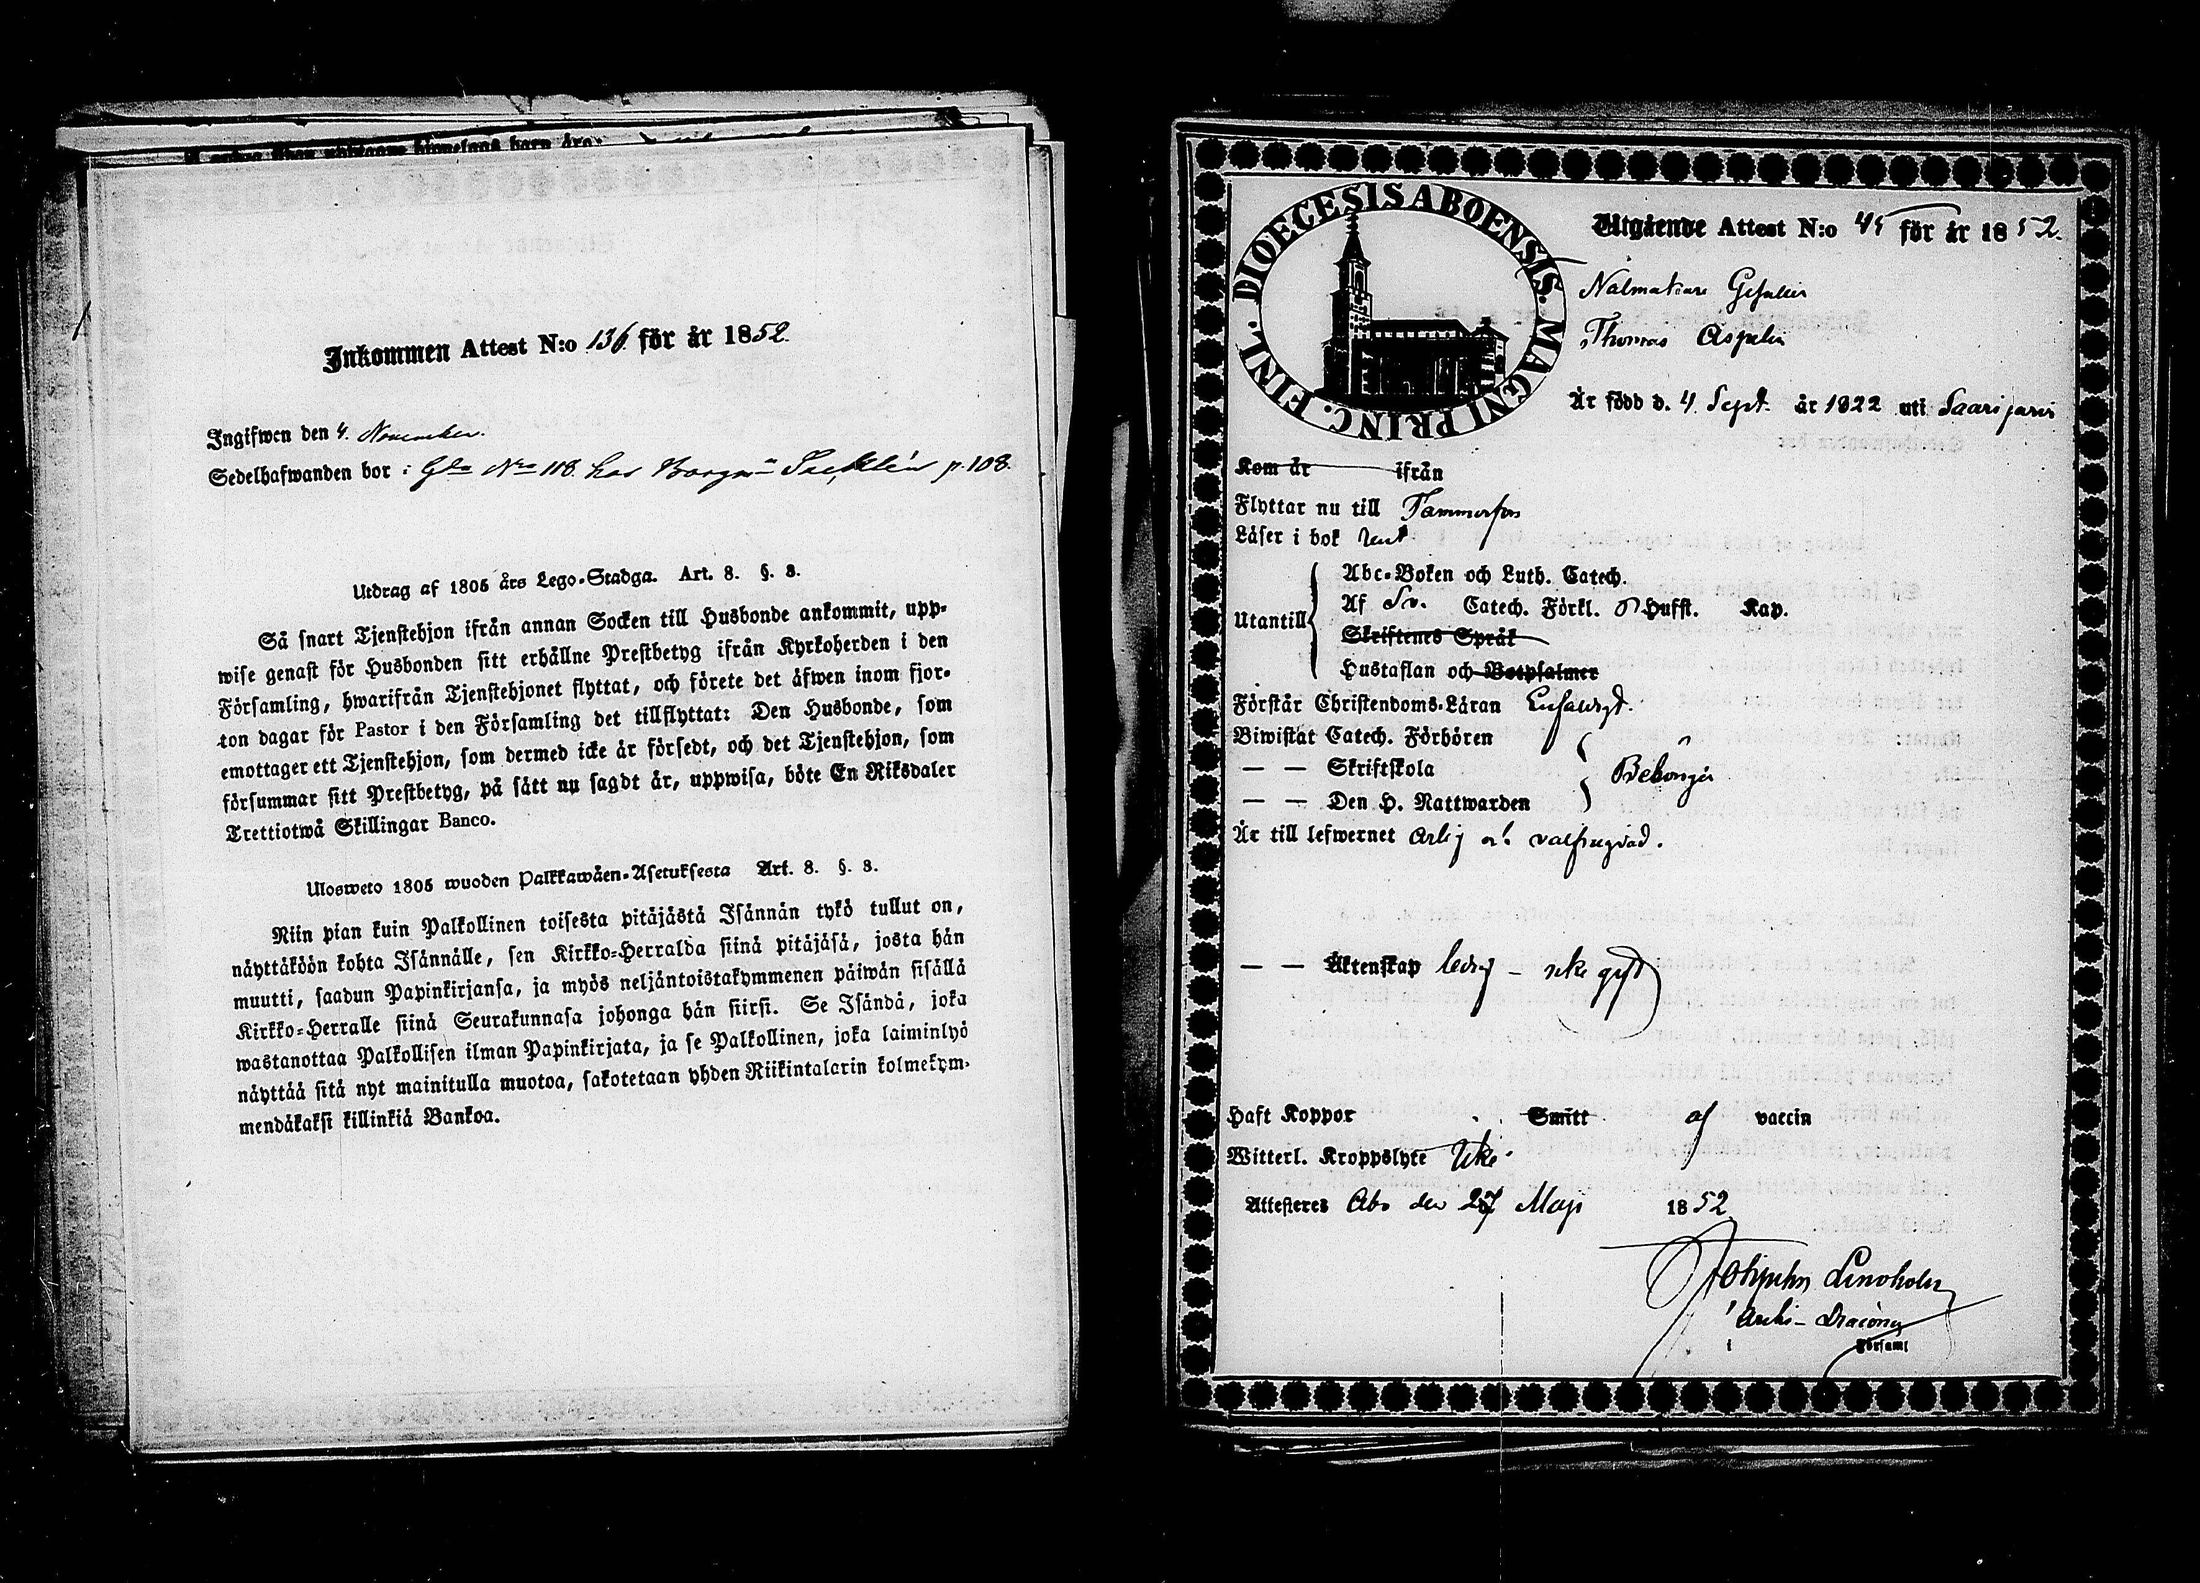 Inkommen Attest N:o 136 för år 1852.
Ingifwen den 4. November.
Sedelhafwanden bor: Gdn Nro 118. hos Borgn p. 108.
Utdrag af 1805 års Lego-Stadga. Art. 8. §. 3.
Så snart Tjenstehjon ifrån annan Socken till Husbonde ankommit, upp-
wise genast för Husbonden sitt erhållne Prestbetyg ifrån Kyrkoherden i den
Församling, hwarifrån Tjenstehjonet flyttat, och förete det äfwen inom fjor-
ton dagar för Pastor i den Församling det tillflyttat: Den Husbonde, som
emottager ett Tjenstehjon, som dermed icke är försedt, och det Tjenstehjon, som
försummar sitt Prestbetyg, på sätt nu sagdt är, uppwisa, böte En Riksdaler
Trettiotwå Skillingar Banco.
Ulosweto 1805 wuoden Palkkawäen-Asetuksesta Art. 8. §. 3.
Niin pian kuin Palkollinen toisesta pitäjästä Isännän tykö tullut on,
näyttäköön kohta Isännälle, sen Kirkko-Herralda siinä pitäjäsä, josta hän
muutti, saadun Papinkirjansa, ja myös neljäntoistakymmenen päiwän sisällä
Kirkko-Herralle siinä Seurakunnasa johonga hän siirsi. Se Isändä, joka
wastanottaa Palkollisen ilman Papinkirjata, ja se Palkollinen, joka laiminlyö
näyttää sitä nyt mainitulla muotoa, sakotetaan yhden Riikintalarin kolmekym-
mendäkaksi killinkiä Bankoa.
DIOECESIS ABOENSIS. MAGNI PRINC. FINL.
Utgående Attest N:o 45 för år 1852.
Nålmakare Gesällen
Thomas Aspelin
Är född d. 4 Sept. år 1822 uti Saarijärvi
Kom år ifrån
Flyttar nu till Tammerfors
Läser i bok rent
Abc-Boken och Luth. Catech.
Utantill Af Sv. Catech. Förkl. Hufst. Kap.
Skriftenes Språk
Hustaflan och Botpsalmer
Förstår Christendoms-Läran Enfaldigt.
Biwistat Catech. Förhören
— — Skriftskola Behörigen
— — Den H. Nattwarden
Är till lefwernet ärlig och välfrägdad.
— — Äktenskap ledig – icke gift
Haft Koppor Smitt af vaccin
Witterl. Kroppslyte Icke
Attesteres Åbo den 27 Maji 1852
Lindholm
Församl